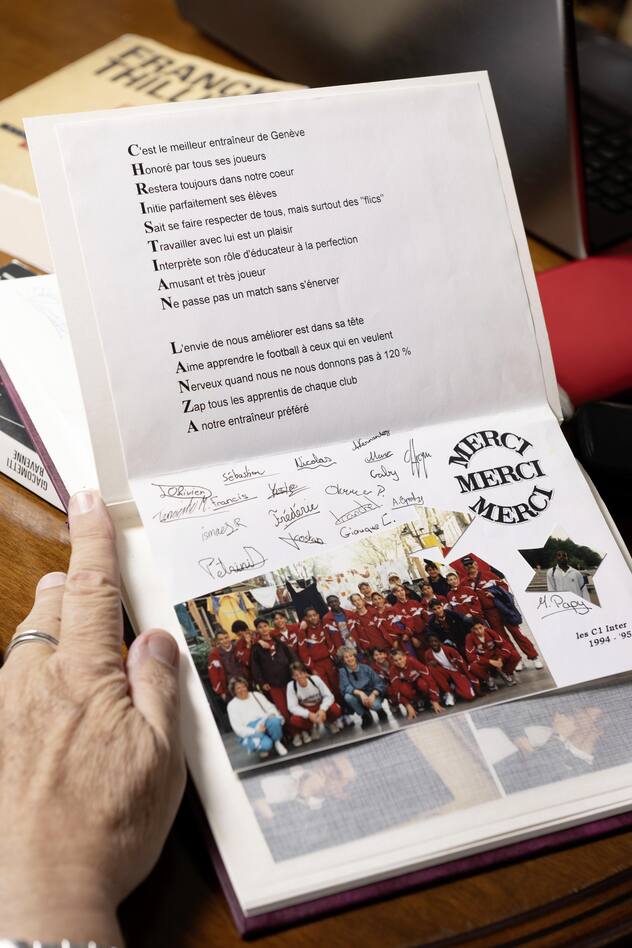 FRANCK
THILL
C'est le meilleur entraîneur de Genève
Honoré par tous ses joueurs
Restera toujours dans notre coeur
Initie parfaitement ses élèves
Sait se faire respecter de tous, mais surtout des "flics"
Travailler avec lui est un plaisir
Interprète son rôle d'éducateur à la perfection
Amusant et très joueur
Ne passe pas un match sans s'énerver
L'envie de nous améliorer est dans sa tête
Aime apprendre le football à ceux qui en veulent
Nerveux quand nous ne nous donnons pas à 120 %
Zap tous les apprentis de chaque club
A notre entraîneur préféré
GIACOMETTI
RAVENNE
Sébastien
Nicolas
Gaby
Francis
Frédéric
MERCI
MERCI
MERCI
M. Papy
les C1 Inter
1994 - '95